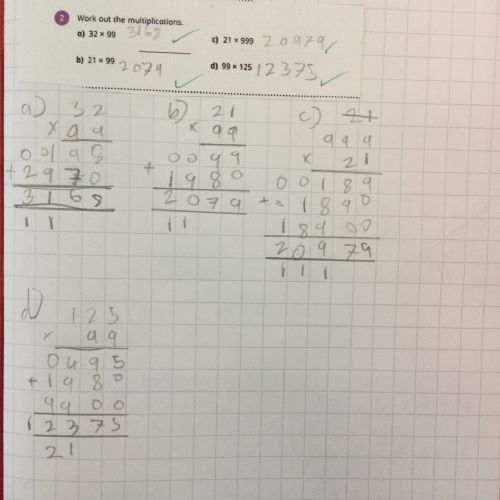 2 Work out the multiplications.
a) 32 × 99 3168 ✓ c) 21 × 999 20979 ✓
b) 21 × 99 2079 ✓ d) 99 × 125 12375 ✓
a) 32
× 99
0098
+ 2970
3168
11
b) 21
× 99
0099
+ 1980
2079
11
c) 21
999
× 21
00189
+ 01890
18900
20979
111
d) 125
× 99
0495
+ 1980
9900
12375
21